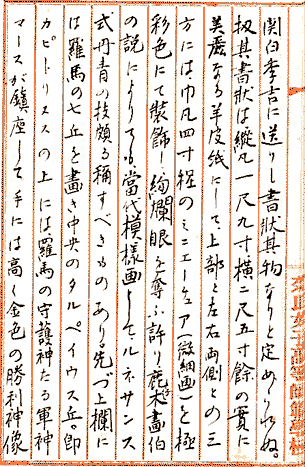 関白秀吉に送りし書状其物なりと定めらりれぬ。
扨其書状は縦凡一尺九寸横二尺五寸餘の實に
美麗なる羊皮紙にして、上部と左右両側との三
方には巾凡四寸程のミニエーチュア(微細画)を極
彩色にて装飾し絢爛眼を奪ふ許り鹿木画伯
の説によりても當代模様画としルネサンス
式丹青の技頗る稱すべきものあり。先づ上欄に
は羅馬の七丘を畫き中央のタルペイウス丘。即
カピトリヌスの上には羅馬の守護神たる軍神
マースが鎮座して手には高く金色の勝利神像